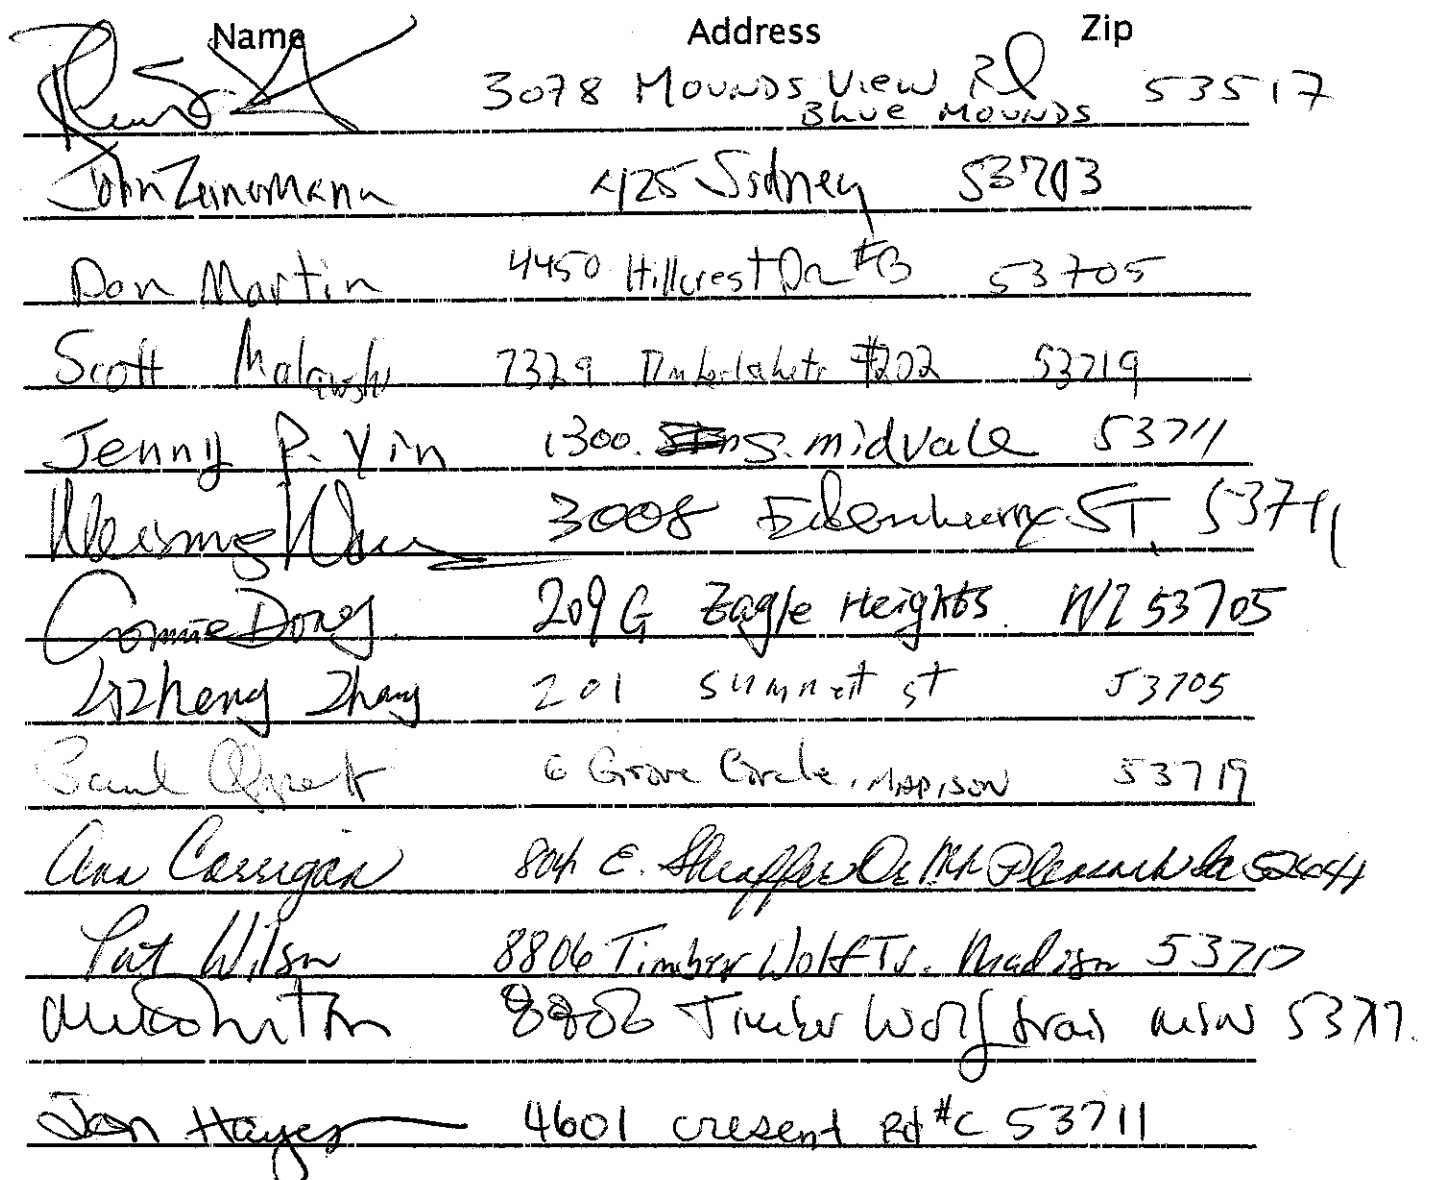 Name Address Zip
3078 Mounds View Rd 53517
Blue Mounds
John Zeinemann 425 Sidney 53703
Don Martin 4450 Hillcrest Dr #3 53705
Scott 7329 #202 53719
Jenny P. Yin 1300 S. midvale 53711
3008 ST. 53711
Connie Dong 209 G Eagle Heights. WI 53705
Lizheng Zhang 201 st 53705
Paul 6 Grove Circle, MADISON 53719
Ann Carrigan 804 E. Sheaffer Dr Mt Pleasant Ia
Pat Wilson 8806 Timber Wolf Tr. Madison 53717
8806 Timber Wolf trail MSN 53717.
Jan Hayes 4601 cresent Rd #C 53711